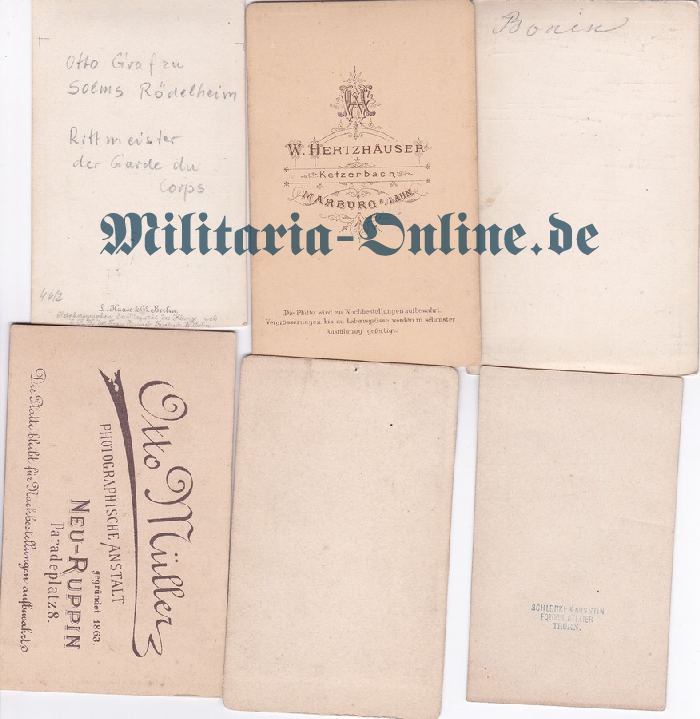 Otto Graf zu
Solms Rödelheim
Rittmeister
der Garde du
Corps
W. HERTZHÄUSER
Ketzerbach
MARBURG a/LAHN.
Die Platte wird zu Nachbestellungen aufbewahrt.
Vergrösserungen bis zu Lebensgrösse werden in schönster
Ausführung gefertigt.
Bonin
Militaria-Online.de
L. Haase & Co. Berlin
Otto Müller
PHOTOGRAPHISCHE ANSTALT
gegründet 1863.
NEU-RUPPIN
Paradeplatz 8.
Die Platte bleibt für Nachbestellungen aufbewahrt.
THORN.